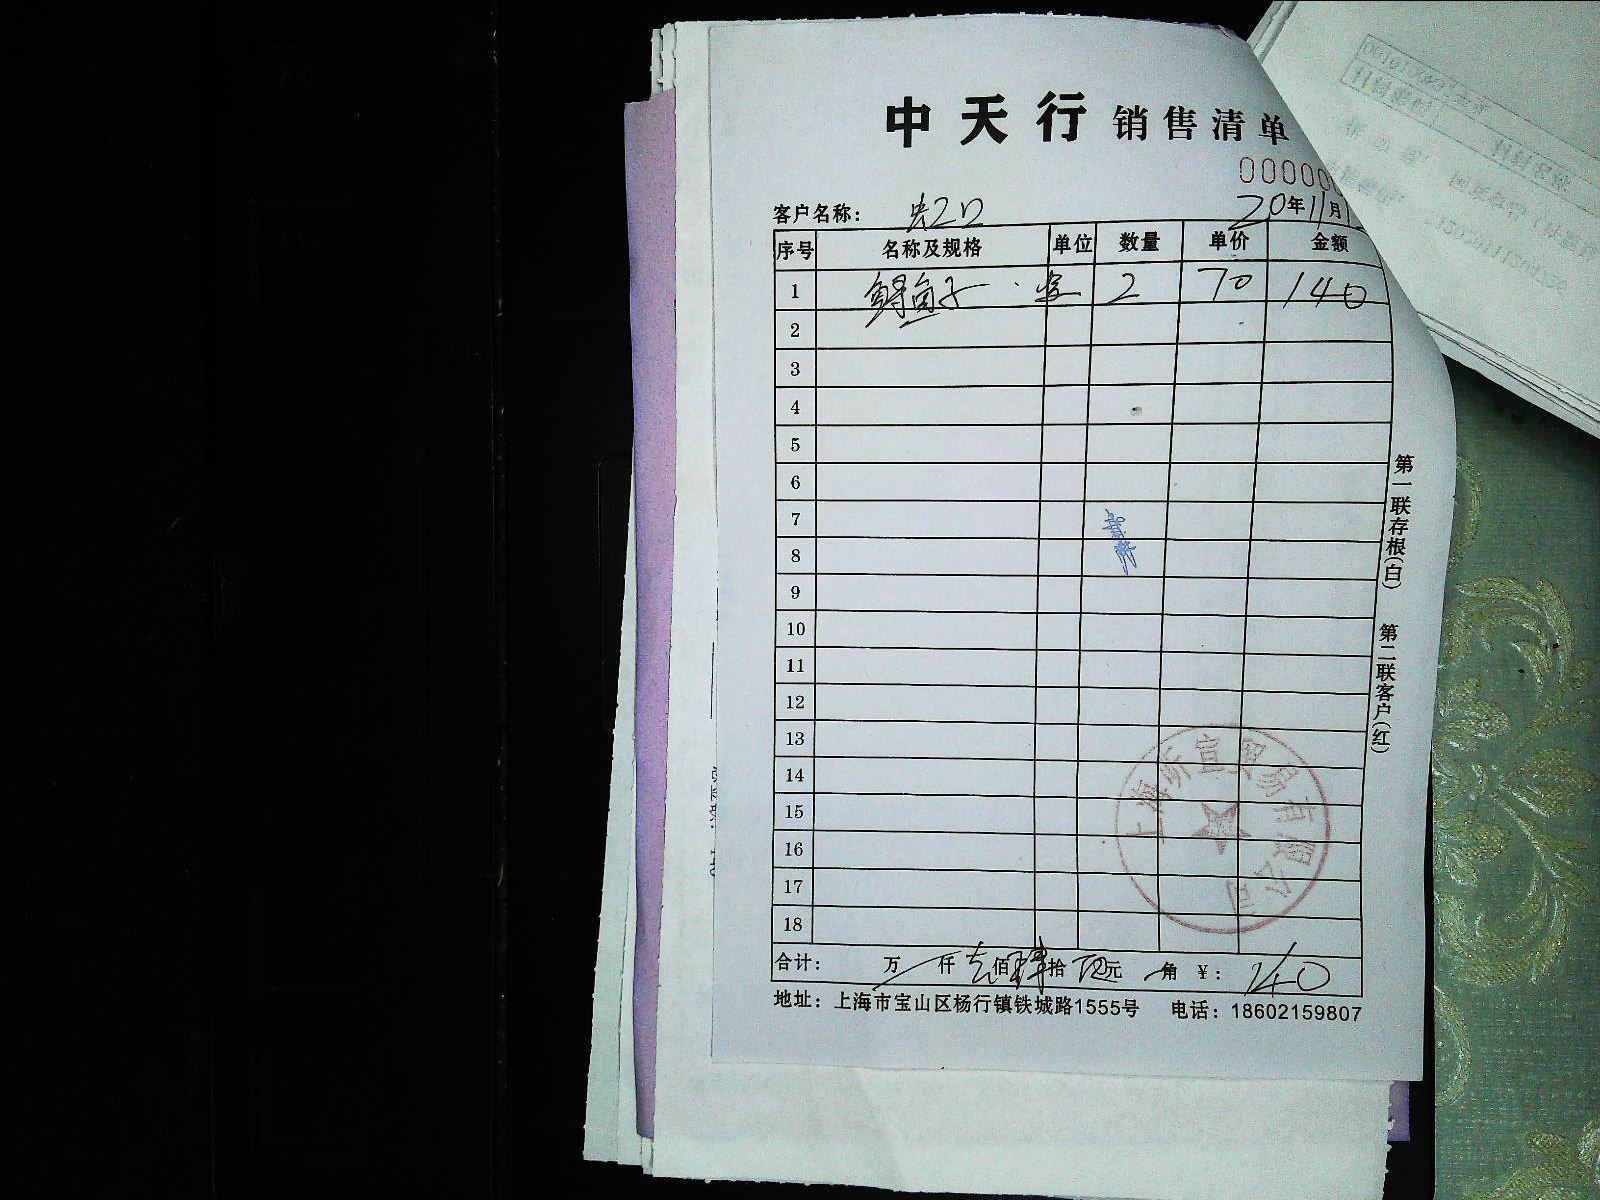 中天行 销售清单
00000
客户名称： 虹口 20年11月1
序号 名称及规格 单位 数量 单价 金额
1 鲟鱼子 盒 2 70 140
2
3
4
5
6
7
8
9
10
11
12
13
14
15
16
17
18
上海昕宣贸易有限公司
合计： 万 仟 壹佰肆拾 元 角 ¥： 140
地址：上海市宝山区杨行镇铁城路1555号 电话：18602159807
第一联存根(白) 第二联客户(红)